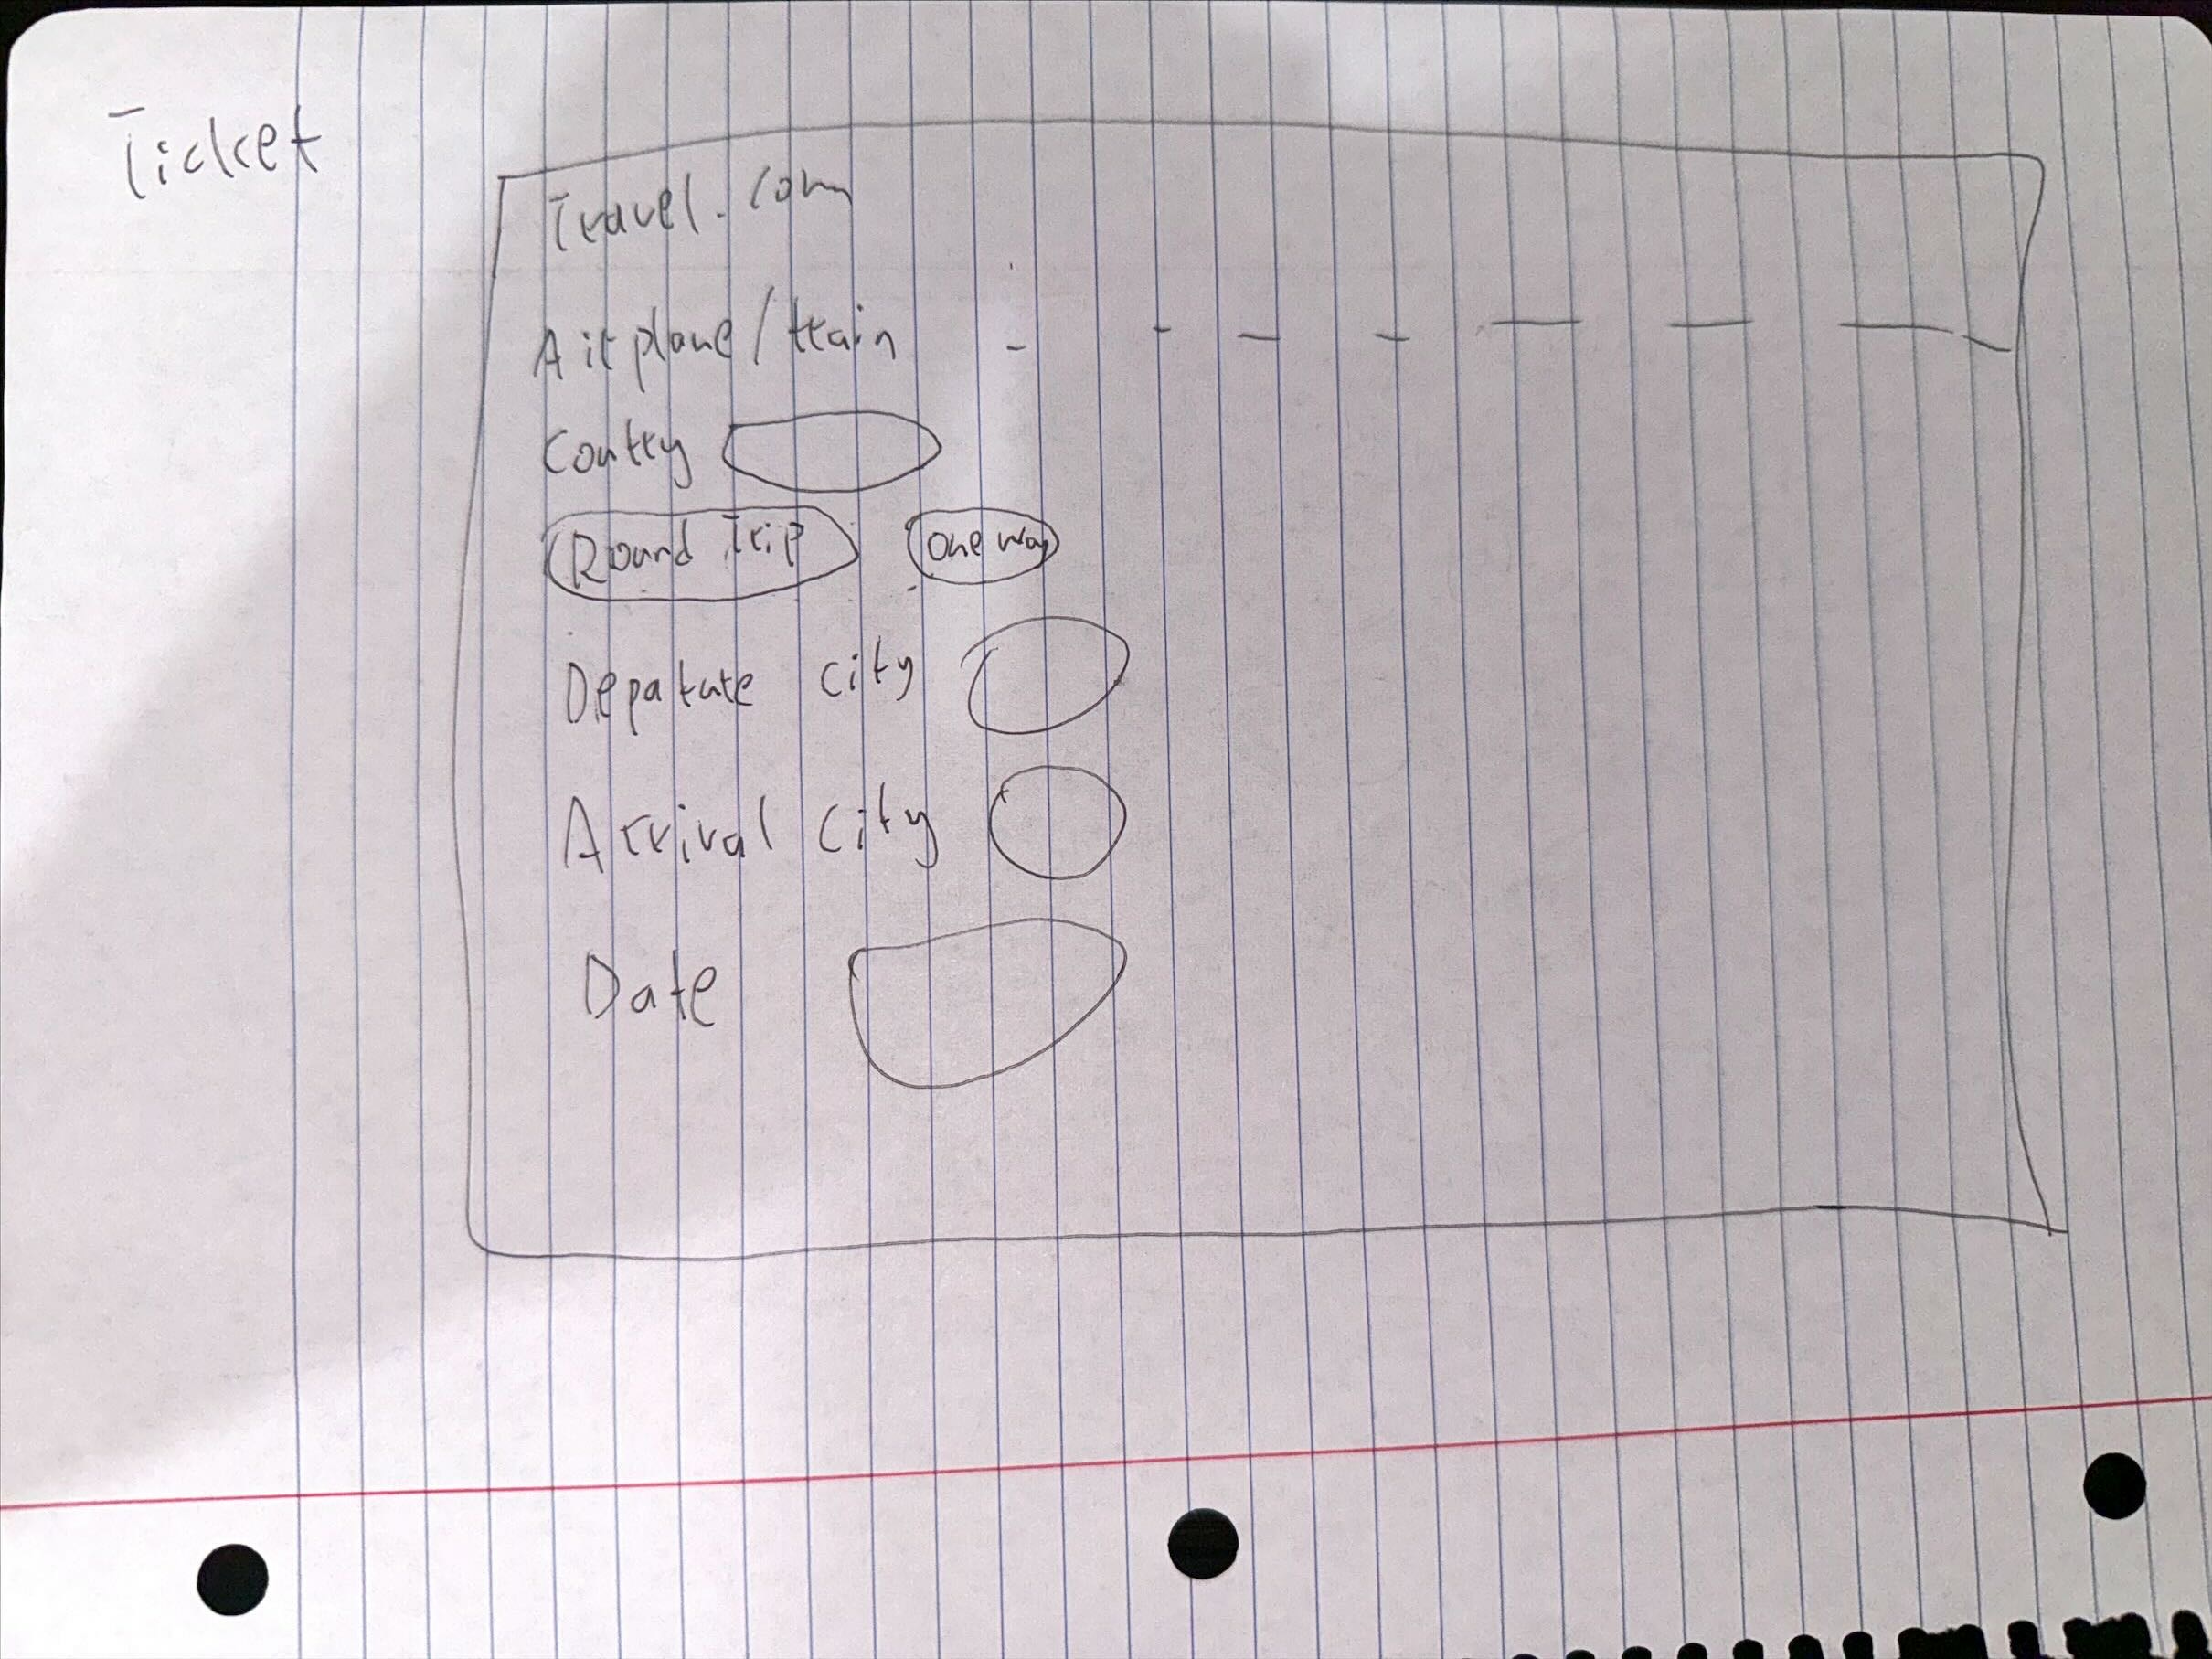 Ticket
Travel.com
Airplane/train - - - - - - - -
Contry
Round Trip One way
Depature city
Arrival City
Date